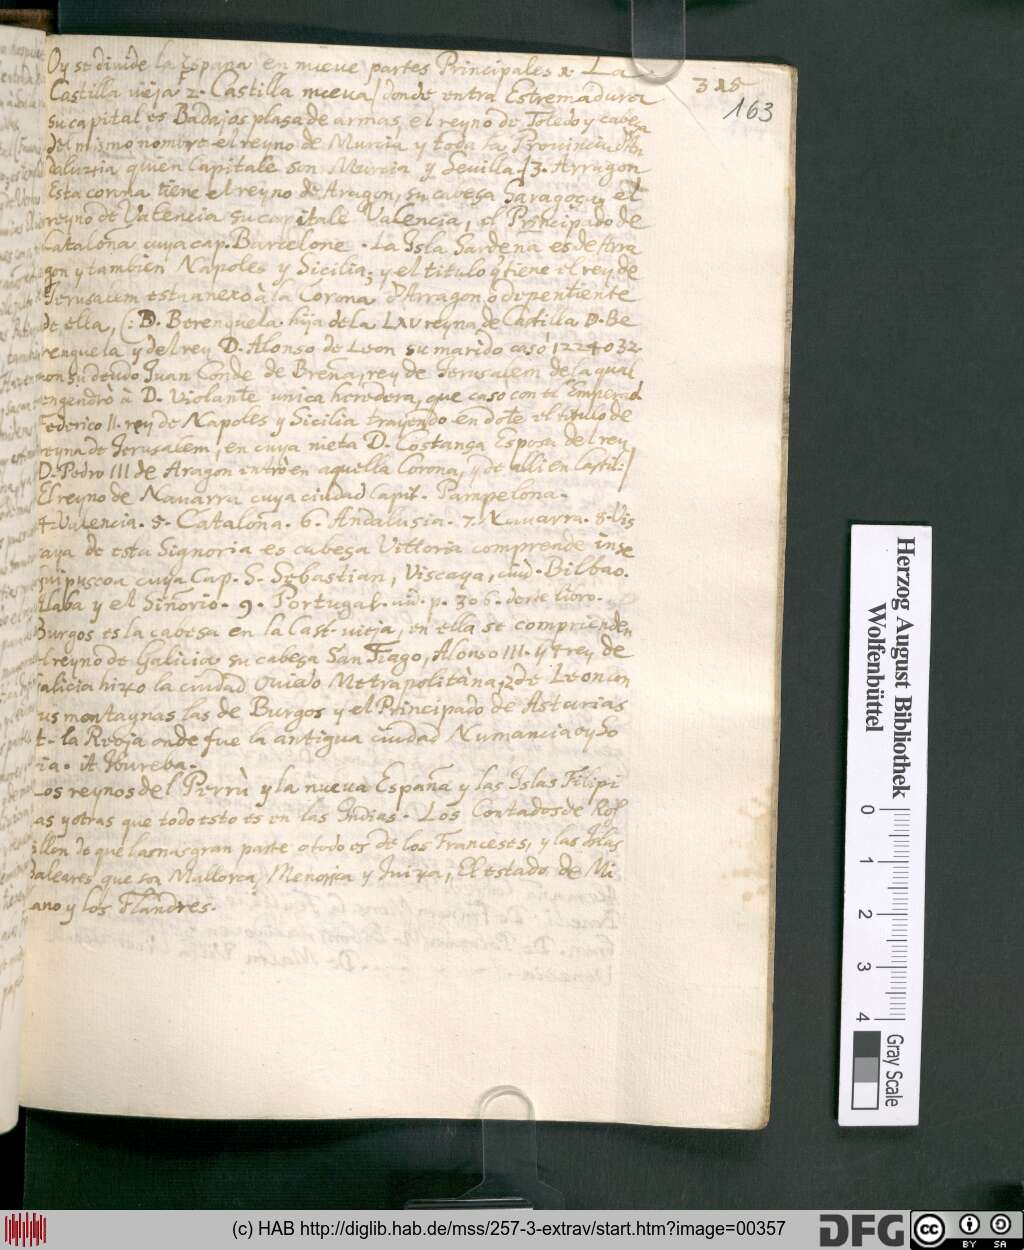 315
163
Oy se divide la España en nueve partes Principales 1. La
Castilla vieja 2. Castilla nueva / donde entra Estremadura
su capital es Badajos plasa de armas, el reyno de Toledo y cabesa
del mismo nombre el reyno de Murcia y toda la Provincia d'An
daluzia quien Capitale son Murcia y Sevilla / 3. Arragon
Esta corona tiene el reyno de Aragon, su cabesa Saragoça, el
reyno de Valencia su capitale Valencia, el Principado de
Cataloña cuya cap. Barcelone. La Isla Sardena es de Arra
gon y tambien Napoles y Sicilia; y el titulo q tiene el rey de
Jerusalem esta anexo à la Corona d'Arragon o dependiente
de ella, (: D. Berenguela hija de la reyna de Castilla D. Be
renguela y del rey D. Alonso de Leon su marido casó 1224 o 32
con su deudo Juan Conde de Breña, rey de Jerusalem de la qual
engendrò à D. Violante unica heredera, que caso con el Emperad.
Federico II. rey de Napoles y Sicilia trayendo en dote el titulo de
reyna de Jerusalem, en cuya nieta D. Costanza Esposa del rey
D. Pedro III de Aragon entrò en aquella Corona, y de alli en Castil:/
El reyno de Navarra cuya ciudad Capit. Pampelona.
4. Valencia. 5. Cataloña. 6. Andalusia. 7. Navarra. 8. Vis
caya de esta Signoria es cabesa Vittoria comprende in se
Guipuscoa cuya Cap. S. Sebastian, Viscaya, ciud. Bilbao.
Alaba y el Siñorio. 9. Portugal. vid. p. 306. deste libro.
Burgos es la cabesa en la Cast. vieja, en ella se comprienden
el reyno de Galicia su cabesa San Tiago, Alonso III. y rey de
Galicia hizo la ciudad Oviedo Metrapolitàna, 2 de Leon con
sus montaynas las de Burgos y el Principado de Asturias
it. la Rioja onde fue la antigua ciudad Numancia oy So
ria. it Bureba.
Los reynos del Perrù y la nueva España y las Islas Filipi
nas y otras que todo esto es en las Indias. Los Contados de Ros
sillon de que la mas gran parte o todo es de los Franceses, y las Islas
Baleares que son Mallorca, Menorca y Iuiza, El estado de Mi
lano y los Flandres.
Herzog August Bibliothek
Wolfenbüttel
0 1 2 3 4
Gray Scale
(c) HAB http://diglib.hab.de/mss/257-3-extrav/start.htm?image=00357
DFG
cc BY SA